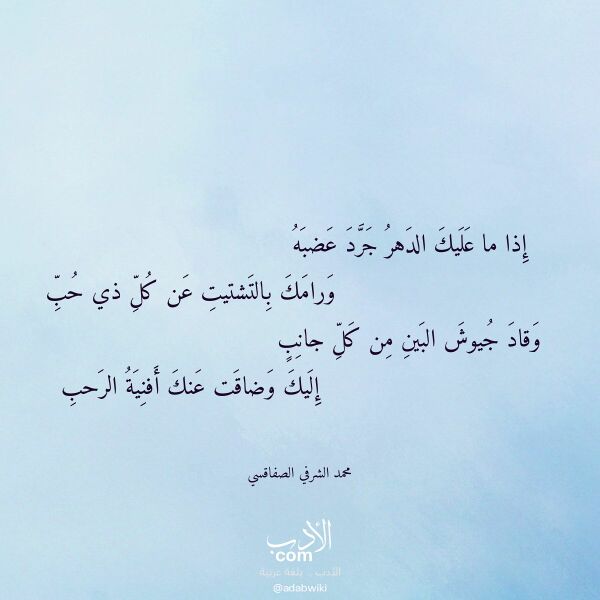 إِذا ما عَلَيكَ الدَهرُ جَرَّدَ عَضبَهُ
وَرامَكَ بِالتَشتيتِ عَن كُلِّ ذي حُبِّ
وَقادَ جُيوشَ البَينِ مِن كَلِّ جانِبٍ
إِلَيكَ وَضاقَت عَنكَ أَفنِيَةُ الرَحبِ
محمد الشرفي الصفاقسي
الأدب
com
الأدب .. بلغة عربية
@adabwiki